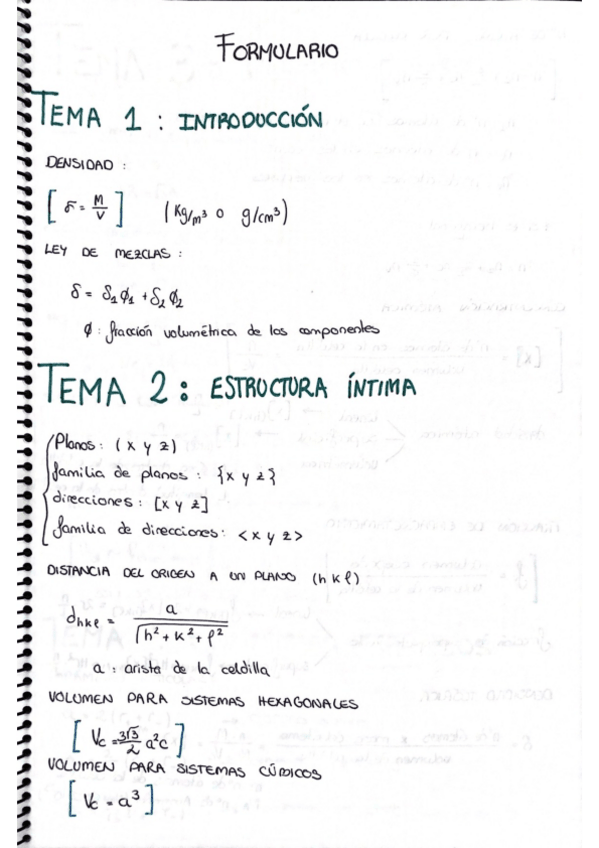 FORMULARIO
TEMA 1 : INTRODUCCIÓN
DENSIDAD :
[ δ = M/V ] (Kg/m³ o g/cm³)
LEY DE MEZCLAS :
δ = δ₁ φ₁ + δ₂ φ₂
φ : fracción volumétrica de los componentes
TEMA 2 : ESTRUCTURA ÍNTIMA
Planos : (x y z)
familia de planos : {x y z}
direcciones : [x y z]
familia de direcciones : <x y z>
DISTANCIA DEL ORIGEN A UN PLANO (h k l)
d_hkl = a / √(h² + k² + l²)
a : arista de la celdilla
VOLUMEN PARA SISTEMAS HEXAGONALES
[ Vc = 3√3/2 a²c ]
VOLUMEN PARA SISTEMAS CÚBICOS
[ Vc = a³ ]